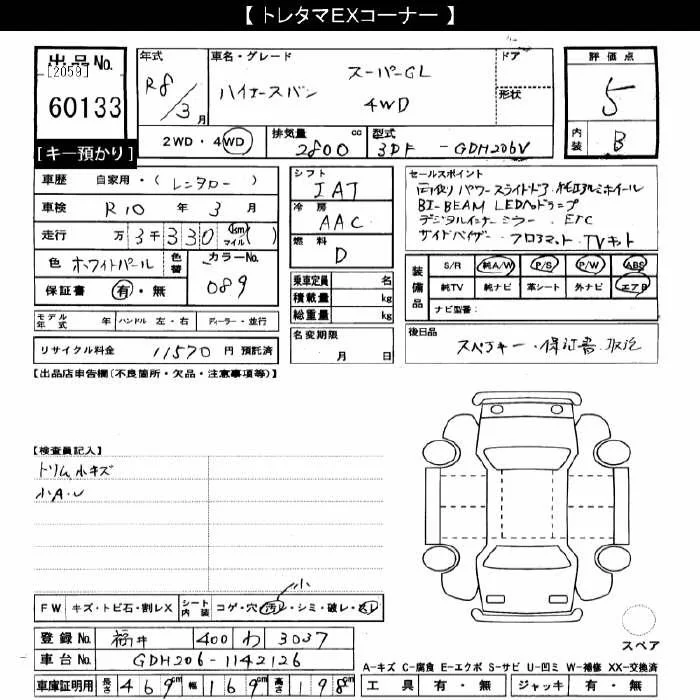 【 トレタマEXコーナー 】
出品No.
[2059]
60133
[キー預かり]
年式
R8/3月
車名・グレード
ハイエースバン
スーパーGL
4WD
ドア
形状
評価点
5
内装
B
2WD・4WD
排気量
2800 cc
型式
3DF - GDH206V
車歴 自家用・( レンタカー )
車検 R10 年 3 月
走行 万 3千330 (km マイル) ( )
色 ホワイトパール 色替
カラーNo.
089
保証書 有・無
モデル年式 年 ハンドル 左・右 ディーラー・並行
リサイクル料金 11570 円 預託済
シフト
IAT
冷房
AAC
燃料
D
乗車定員 名
積載量 kg
総重量 kg
名変期限
月 日
セールスポイント
両側パワースライドドア 純正アルミホイール
BI-BEAM LEDヘッドランプ
デジタルインナーミラー ETC
サイドバイザー・フロアマット・TVキット
装備品
S/R 純A/W P/S P/W ABS
純TV 純ナビ 革シート 外ナビ エアB
ナビ型番:
後日品
スペアキー・保証書・取説
【出品店申告欄(不良箇所・欠品・注意事項等)】
【検査員記入】
トリム小キズ
小A・U
小
FW キズ・トビ石・割レX シート内装 コゲ・穴・汚レ・シミ・破レ・スレ
登録No. 福井 400 わ 3007
車台No. GDH206-1142126
車庫証明用 長さ 469cm 幅 169cm 高さ 198cm
スペア
A-キズ C-腐食 E-エクボ S-サビ U-凹ミ W-補修 XX-交換済
工具 有・無 ジャッキ 有・無